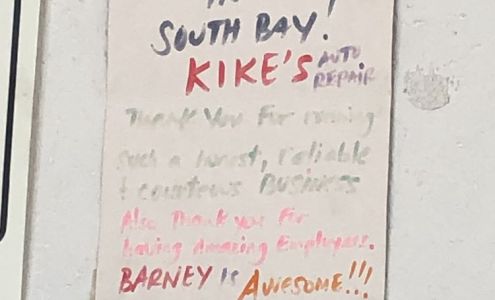 IN
SOUTH BAY!
KIKE'S AUTO REPAIR
Thank You For running
Such a honest, reliable
& courteous BUSINESS
Also Thank you For
having Amazing Employees.
BARNEY is Awesome!!!